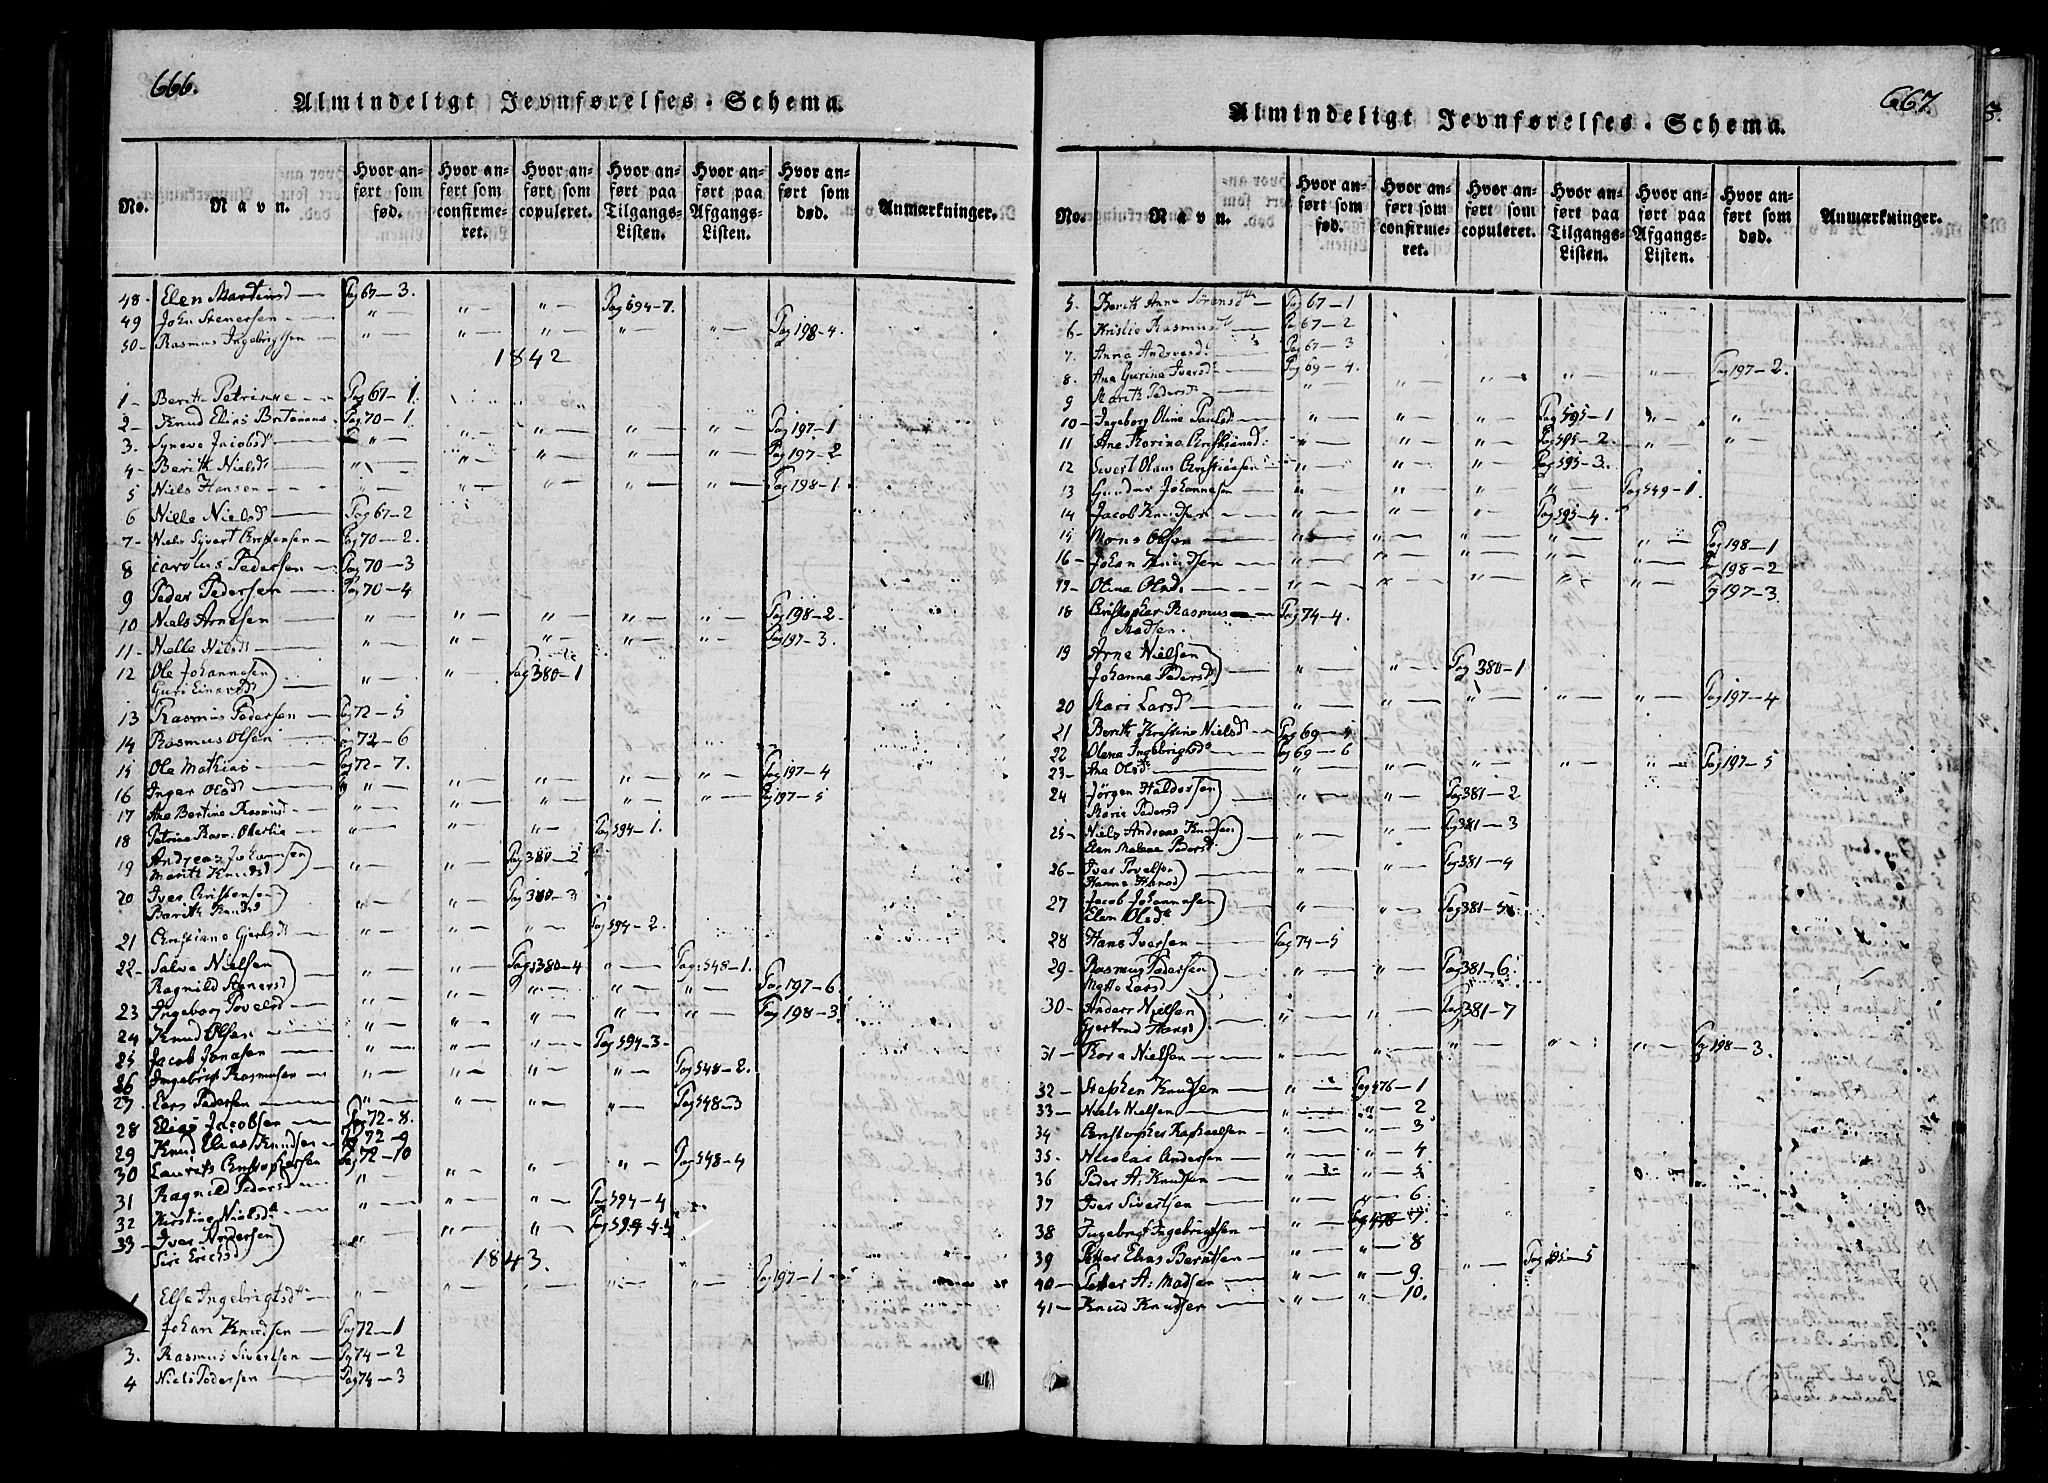 666.
Almindeligt Jevnførelses-Schema.
No. Navn. Hvor anført som fød. Hvor anført som confirmeret. Hvor anført som copuleret. Hvor anført paa Tilgangs-Listen. Hvor anført paa Afgangs-Listen. Hvor anført som død. Anmærkninger.
48- Elen Martinsd — Pag 67-3. " — " — Pag 594-7.
49 John Stenersen - — " — " — " — " — " — Pag 198-4.
50- Rasmus Ingebrigtsen — " — " — " —
1842
1- Berith Petrikke - - Pag 67-1.
2- Knud Elias Berteniuss. Pag 70-1.
3. Syneve Jacobsd — " — " — " — " — " — Pag 197-1
4- Berith Nielsd — " — " — " — " — " — Pag 197-2
5 Niels Hansen - - - " — " — " — " — " — Pag 198-1.
6 Nille Nielsd — Pag 67-2
7- Niels Syvert Christensen - Pag 70-2.
8 Carolus Pedersen — Pag 70-3
9 Peder Pedersen — Pag 70-4
10 Niels Arnesen — " — " — " — " — " — Pag 198-2.
11- Nelle Nielsd — " — " — " — " — " — Pag 197-3.
12 Ole Johannesen
Guri Einarsd) — " — " — Pag 380-1
13 Rasmus Pedersen — Pag 72-5
14 Rasmus Olsen — Pag 72-6
15 Ole Mathias — Pag 72-7.
16 Inger Olsd — " — " — " — " — " — Pag 197-4
17 Ane Bertine Rasmusd — " — " — " — " — Pag 197-5
18 Petrine Rasm. — " — " — " — Pag 594-1.
19 Andreas Johannsen
Marith Knudsd) " — " — Pag 380-2
20 Iver Christensen
Barith Knudsd) " — " — Pag 380-3
21 Christiane Gjertsd — " — " — " — Pag 594-2.
22- Salve Nielsen
Ragnild) — " — " — Pag: 380-4 " — Pag: 548-1.
23 Ingeborg Povelsd — " — " — " — " — " — Pag 197-6.
24 Knud Olsen — " — " — " — " — " — Pag 198-3.
25 Jacob Jonasen — " — " — " — Pag 594-3-
26 Ingebrigt Rasmusen — " — " — " — " — Pag 548-2.
27. Lars Pedersen — " — " — " — " — Pag 548-3
28 Elias Jacobsen — Pag 72-8.
29 Knud Elias Knudsen — Pag 72-9
30 Laurits Christophersen Pag 72-10
31 Ragnild Pedersd — " — " — " — " — Pag 548-4
32 Kirstine Nielsd — " — " — " — Pag 594-4
33- Iver Andersen
Siri Erichsd) " — " — " — Pag 594-5
1843.
1 Else Ingebrigtsd — " — " — " — " — " — Pag 197-1
Johan Knudsen — Pag 72-1
3. Rasmus Sivertsen — Pag 74-2
4 Niels Pedersen — Pag 74-3
667.
Almindeligt Jevnførelses-Schema.
No. Navn. Hvor anført som fød. Hvor anført som confirmeret. Hvor anført som copuleret. Hvor anført paa Tilgangs-Listen. Hvor anført paa Afgangs-Listen. Hvor anført som død. Anmærkninger.
5. Berith Anne Sørensd — Pag 67-1
6- Kristie Rasmusd — Pag 67-2
7. Anna Andsvesd — Pag 67-3
8. Ane Gurine Iversd — Pag 69-4.
9 Marith Pedersd — " — " — " — " — " — Pag 197-2.
10- Ingeborg Oline Paulsd " — " — " — Pag 595-1 " — " —
11 Ane Karina Christiansd: " — " — " — Pag 595-2. " — " —
12 Sivert Olaus Christiansen " — " — " — Pag 595-3.
13 Gunder Johannesen " — " — " — " — Pag 549-1.
14 Jacob Knudsen - " — " — " — Pag 595-4.
15 Mons Olsen — " — " — " — " — " — Pag 198-1
16- Johan Knudsen — " — " — " — " — " — 198-2
17- Oline Olsd. — " — " — " — " — " — Pag 197-3.
18 Christopher Rasmus Madsen. — Pag 74-4.
19 Arne Nielsen
Johanne Pedersd) " — " — Pag 380-1
20 Mari Larsd — " — " — " — " — " — Pag 197-4
21 Berith Kristine Nielsd Pag 69-5
22 Olena Ingebrigtsd — Pag 69-6
23- Ane Olsd — " — " — " — " — " — Pag 197-5
24 Jørgen Haldorsen
Marie Pedersd) " — " — Pag 381-2
25- Niels Andreas Knudsen
Elen Malene Pedersd) " — " — Pag 381-3
26- Iver Povelsen
Hanne Hansd) " — " — Pag 381-4
27 Jacob Johannesen
Elen Olsd) " — " — Pag 381-5
28 Hans Iversen — Pag 74-5
29- Rasmus Pedersen
Mette Larsd) " — " — Pag 381-6.
30- Anders Nielsen
Gjertrud Hansd) " — " — Pag 381-7
31 — Nielsen — " — " — " — " — " — Pag 198-3.
32- Stephen Knudsen — " — Pag 476-1
33- Niels Nielsen — " — " — 2
34 Christopher Raphaelsen - " — " — 3
35. Nicolai Andersen — " — " — 4
36 Peder A: Knudsen — " — " — 5
37 Iver Sivertsen — " — " — 6.
38 Ingebrigt Ingebrigtsen — " — Pag 476-7.
39 Petter Elias Berntsen — " — " — 8 " — Pag 595-5
40- Petter A: Madsen — " — " — 9.
41- Knud Knudsen — " — " — 10.